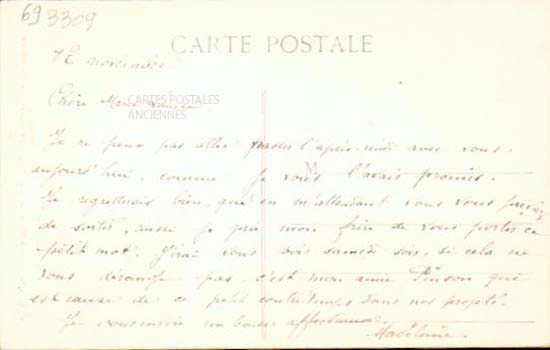 693309
CARTE POSTALE
12 novembre
Chère Marie
CARTES POSTALES
ANCIENNES
Je ne peux pas aller passer l'après-midi avec vous
aujourd'hui, comme je vous l'avais promis.
Je regretterais bien que en m'attendant vous vous
de sortir, aussi je prie mon frère de vous porter ce
petit mot. J'irai vous voir samedi soir, si cela ne
vous dérange pas, c'est mon amie Pinson qui
est cause de ce petit contretemps dans nos projets.
Je vous envoie un baiser affectueux
Madeleine